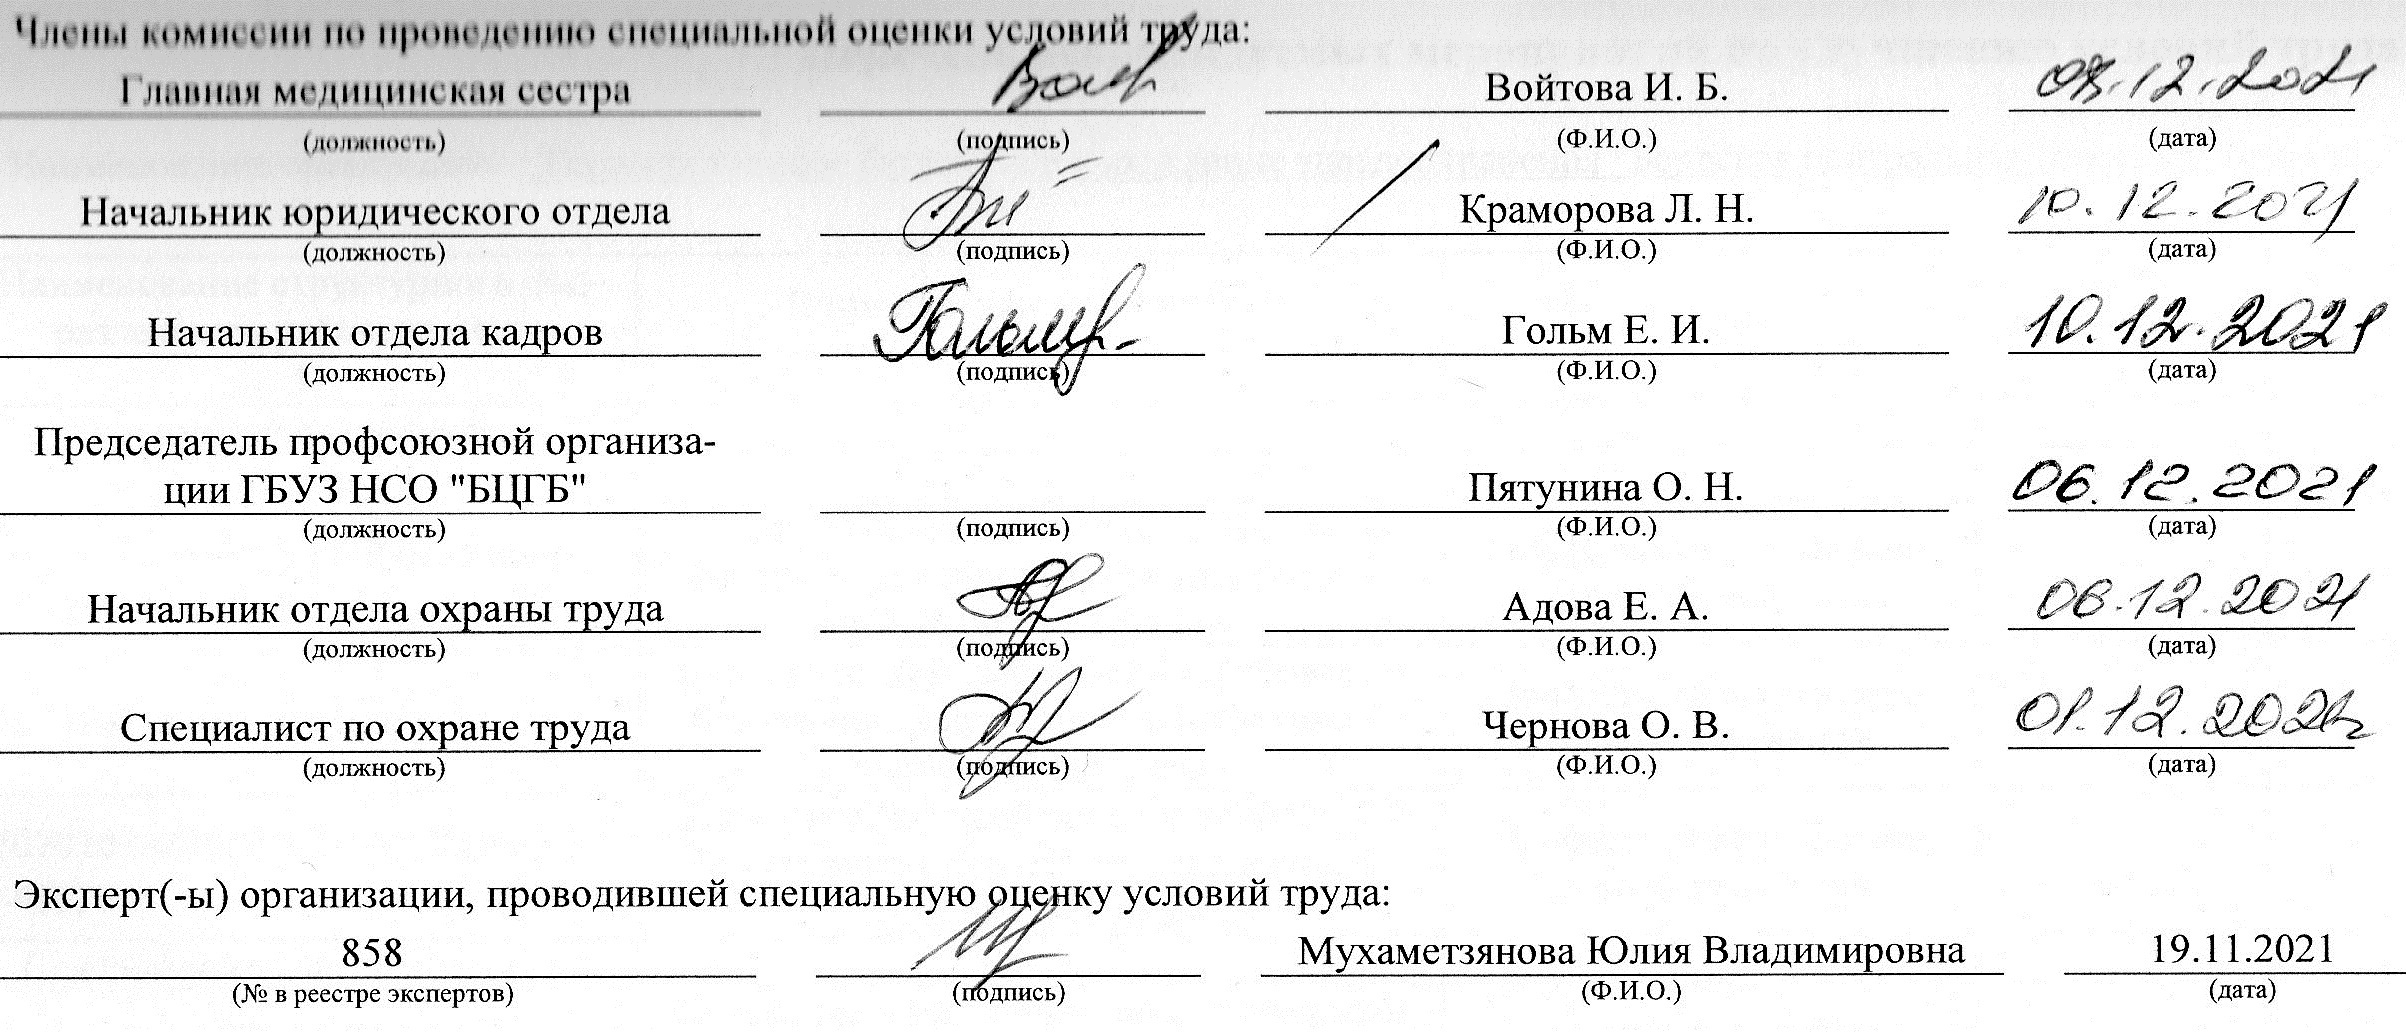 Члены комиссии по проведению специальной оценки условий труда:
Главная медицинская сестра Войтова И. Б. 08.12.2021
(должность) (подпись) (Ф.И.О.) (дата)
Начальник юридического отдела Краморова Л. Н. 10.12.2021
(должность) (подпись) (Ф.И.О.) (дата)
Начальник отдела кадров Гольм Е. И. 10.12.2021
(должность) (подпись) (Ф.И.О.) (дата)
Председатель профсоюзной организа-
ции ГБУЗ НСО "БЦГБ" Пятунина О. Н. 06.12.2021
(должность) (подпись) (Ф.И.О.) (дата)
Начальник отдела охраны труда Адова Е. А. 06.12.2021
(должность) (подпись) (Ф.И.О.) (дата)
Специалист по охране труда Чернова О. В. 01.12.2021
(должность) (подпись) (Ф.И.О.) (дата)
Эксперт(-ы) организации, проводившей специальную оценку условий труда:
858 Мухаметзянова Юлия Владимировна 19.11.2021
(№ в реестре экспертов) (подпись) (Ф.И.О.) (дата)